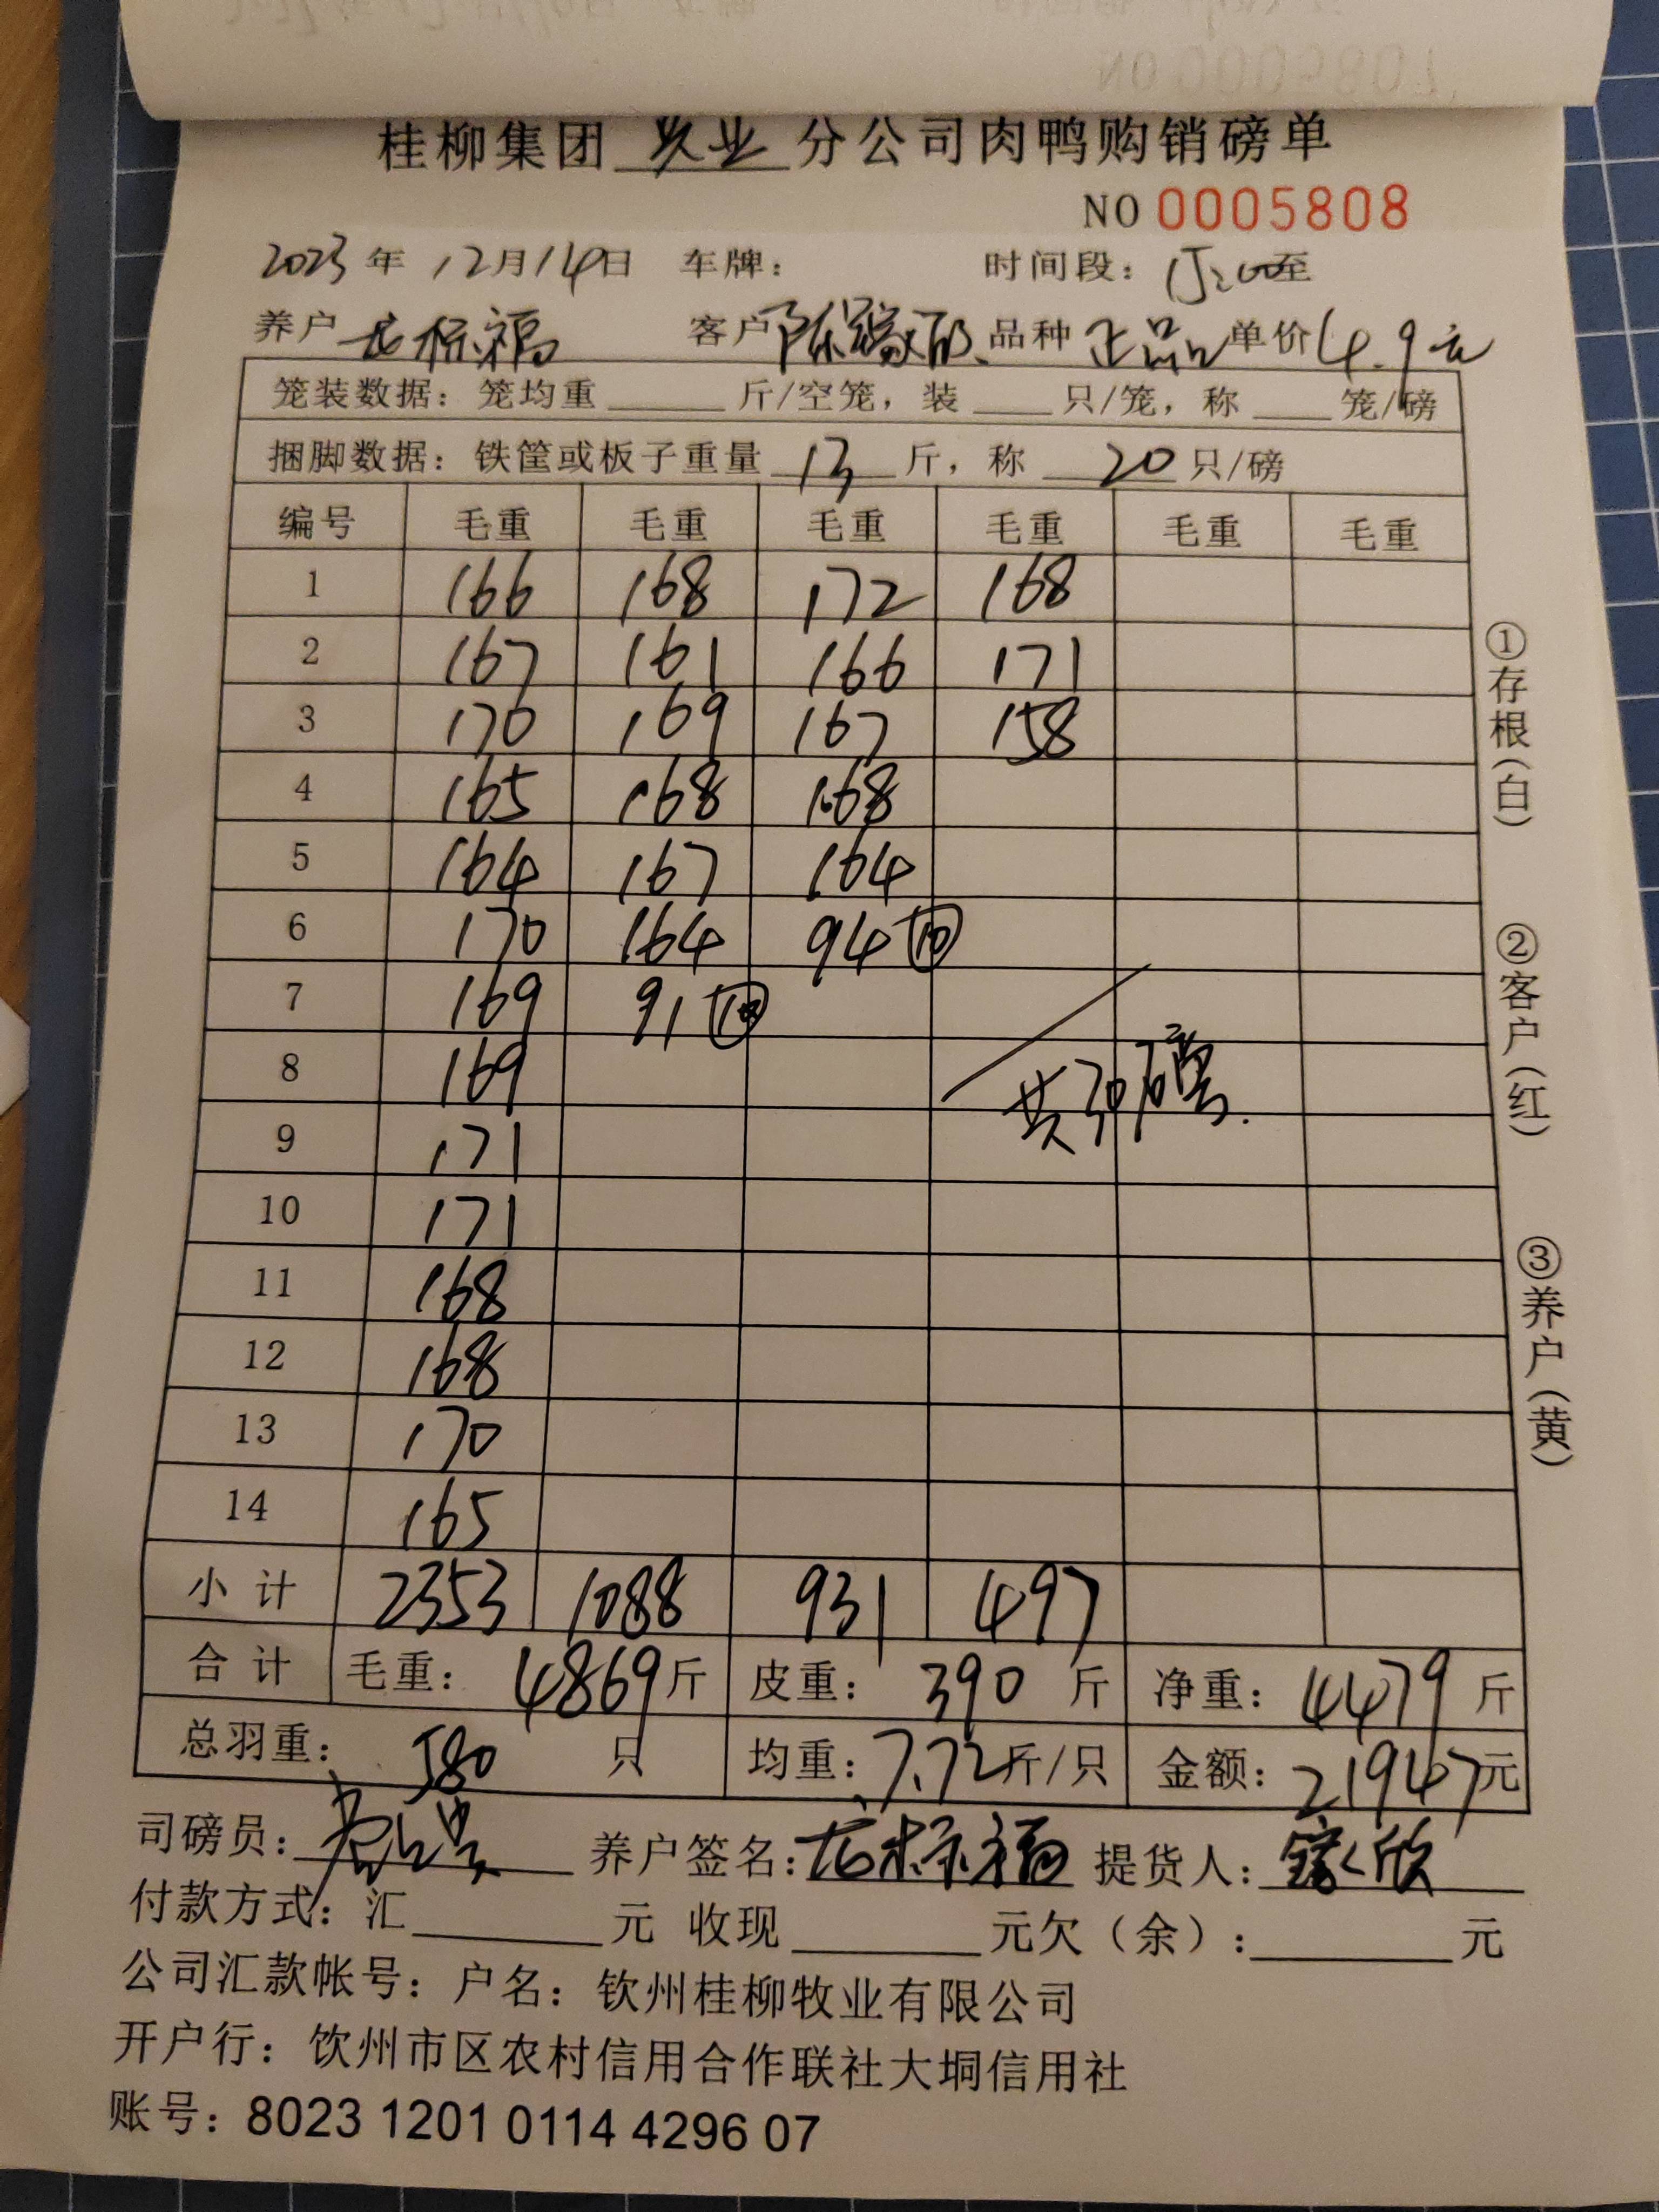 桂柳集团 牧业 分公司肉鸭购销磅单
NO 0005808
2023年 12月14日 车牌: 时间段: 15:00至
养户 标福 客户 陈 品种 正品 单价 4.9元
笼装数据: 笼均重 斤/空笼, 装 只/笼, 称 笼/磅
捆脚数据: 铁筐或板子重量 13 斤, 称 20 只/磅
编号 毛重 毛重 毛重 毛重 毛重 毛重
1 166 168 172 168
2 167 161 166 171
3 170 169 167 158
4 165 168 168
5 164 167 164
6 170 164 94 ⑩
7 169 91 ⑩
8 169
共30磅.
9 171
10 171
11 168
12 168
13 170
14 165
小计 2353 1088 931 497
合计 毛重: 4869斤 皮重: 390 斤 净重: 4479 斤
总羽重: 580 只 均重: 7.72斤/只 金额: 21947元
司磅员: 养户签名: 标福 提货人: 欣
付款方式: 汇 元 收现 元欠(余): 元
公司汇款帐号: 户名: 钦州桂柳牧业有限公司
开户行: 饮州市区农村信用合作联社大垌信用社
账号: 8023 1201 0114 4296 07
①存根(白)
②客户(红)
③养户(黄)